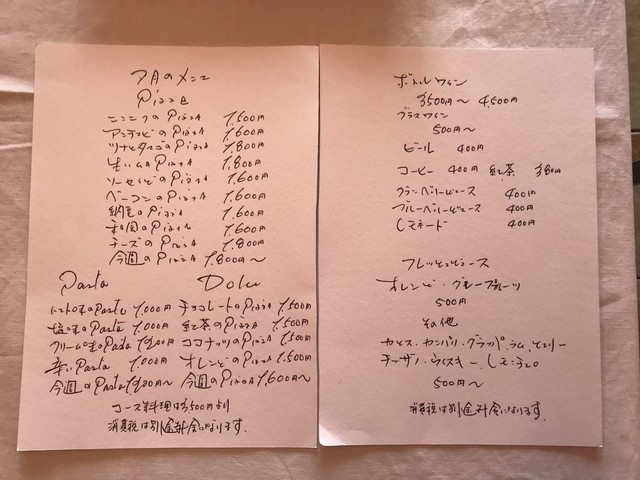 7月のメニュー
Pizza
ニンニクのPizza 1,500円
アンチョビのPizza 1,600円
ツナとタマゴのPizza 1,800円
生ハムのPizza 1,800円
ソーセイジのPizza 1,600円
ベーコンのPizza 1,600円
納豆のPizza 1,600円
和風のPizza 1,600円
チーズのPizza 1,800円
今週のPizza 1,800円〜
Pasta
トマト味のPasta 1,000円
塩味のPasta 1,000円
クリーム味のPasta 1,200円
辛いPasta 1,000円
今週のPasta 1,200円〜
Dolce
チョコレートのPizza 1,500円
紅茶のPizza 1,500円
ココナッツのPizza 1,500円
オレンジのPizza 1,500円
今週のPizza 1,600円〜
コース料理は3,500円より
消費税は別途料金になります。
ボトルワイン
3,500円〜 4,500円
グラスワイン
500円〜
ビール 400円
コーヒー 400円 紅茶 380円
クランベリージュース 400円
ブルーベリージュース 400円
レモネード 400円
フレッシュジュース
オレンジ・グレープフルーツ
500円
その他
カシス・カンパリ・グラッパ・ラム・シェリー
チンザノ・ウイスキー・レモンチェロ
500円〜
消費税は別途料金になります。